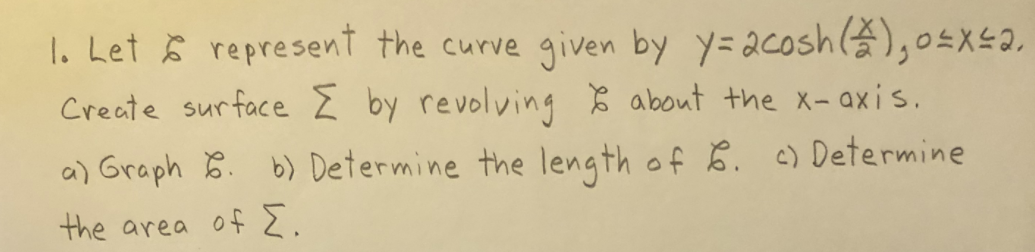 1. Let 𝒞 represent the curve given by y=2cosh(x/2), 0≤x≤2.
Create surface Σ by revolving 𝒞 about the x-axis.
a) Graph 𝒞. b) Determine the length of 𝒞. c) Determine
the area of Σ.